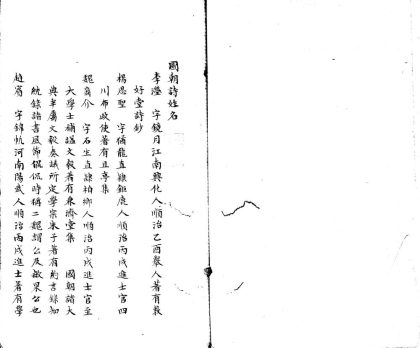 國朝詩姓名
李瀅 字鏡月江南興化人順治乙酉舉人著有敦
好堂詩鈔
楊思聖 字猶龍直隸鉅鹿人順治丙戌進士官四
川布政使著有且亭集
魏裔介 字石生直隸柏鄉人順治丙戌進士官至
大學士補諡文毅著有兼濟堂集 國朝諸大
典半屬文毅奏議所定學宗朱子著有約言錄知
統錄諸書風節侃侃時稱二魏謂公及敏果公也
趙賓 字錦帆河南陽武人順治丙戌進士著有學